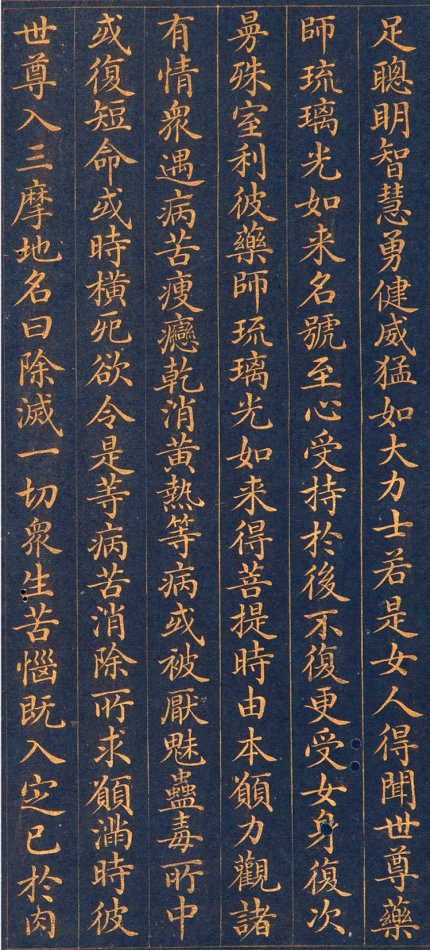 足聰明智慧勇健威猛如大力士若是女人得聞世尊藥
師琉璃光如来名號至心受持於後不復更受女身復次
曼殊室利彼藥師琉璃光如来得菩提時由本願力觀諸
有情衆遇病苦瘦癴乾消黄熱等病或被厭魅蠱毒所中
或復短命或時横死欲令是等病苦消除所求願滿時彼
世尊入三摩地名曰除滅一切衆生苦惱既入定已於肉